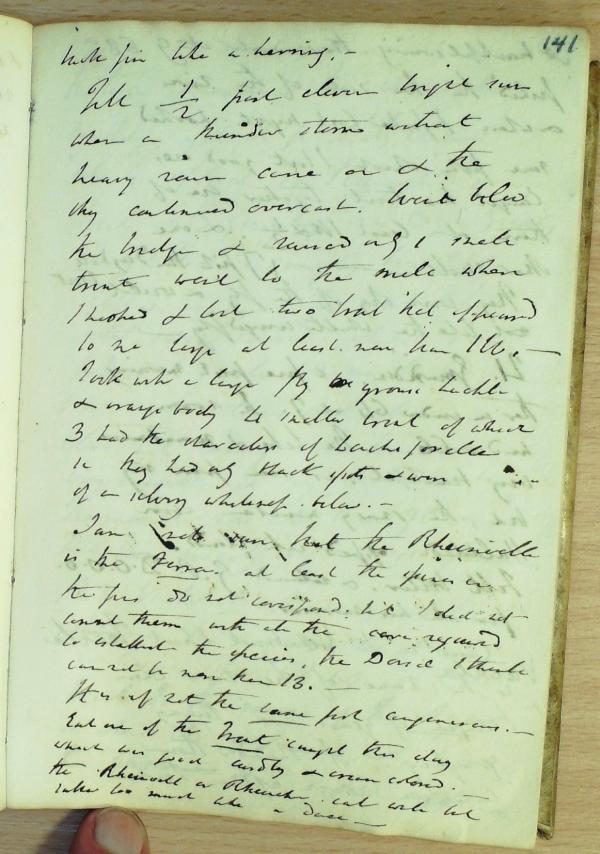 141
back fin like a herring. –
Till 1/2 past eleven bright sun
when a thunder storm without
heavy rain came on & the
sky continued overcast. Went below
the bridge & raised only 1 small
trout went to the where
I hooked & lost two trout that appeared
to me large at least more than 1lb. –
Took with a large fly grouse hackle
& orange body smaller trout of which
3 had the characters of
they had only black spots & were
of a silvery whiteness below. –
I am not sure that the
in the at least the spines in
the fins do not correspond. but I did not
count them with the care required
to establish the species, the Dorsal I think
can not be more than 13. –
It is if not the same fish congenerous. –
Eat one of the Trout caught this day
which was good & cream colored. –
the or eat with but
rather too much like a –